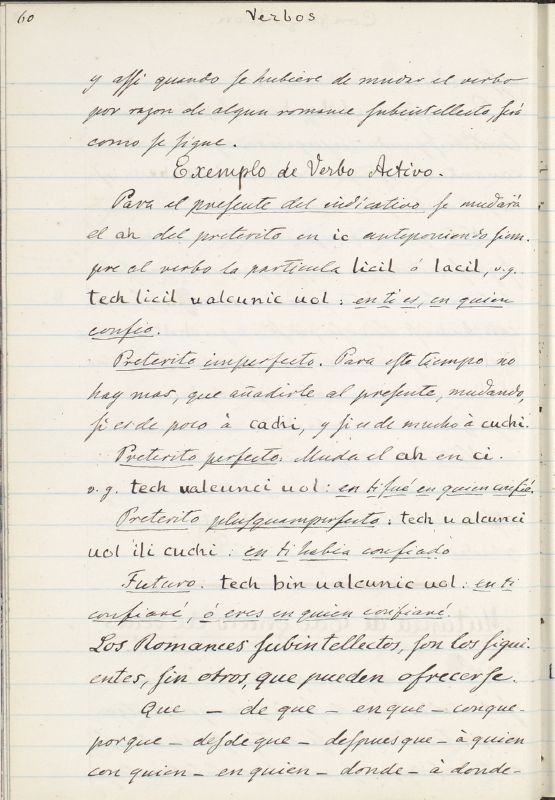 60
Verbos
y assi quando se hubiere de mudar el verbo
por razon de algun romance subintellecto, será
como se sigue.
Exemplo de Verbo Activo.
Para el presente del indicativo se mudará
el ah del preterito en ic anteponiendo siem-
pre al verbo la particula licil ó lacil, v.g.
tech licil ualcunic uol : en ti es, en quien
confio.
Preterito imperfecto. Para este tiempo no
hay mas, que añadirle al presente, mudando,
si es de poco à cachi, y si es de mucho à cuchi.
Preterito perfecto: Muda el ah en ci.
v.g. tech ualcunci uol : en ti fué en quien confié.
Preterito plusquamperfecto : tech u alcunci
uol ili cuchi : en ti habia confiado
Futuro. tech bin ualcunic uol : en ti
confiaré ó eres en quien confiaré
Los Romances subintellectos, son los sigui-
entes, sin otros, que pueden ofrecerse.
Que – de que – en que – conque –
porque – desde que – despues que – à quien
con quien – en quien – donde – à donde –